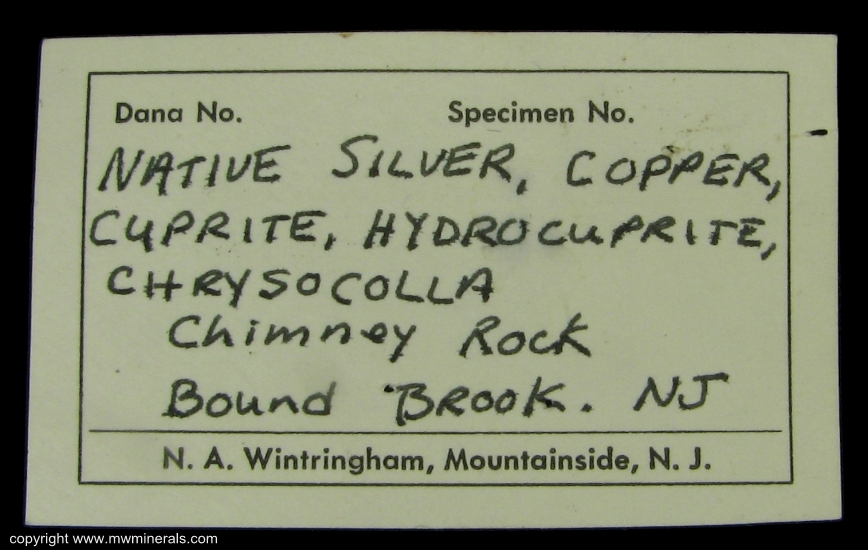 Dana No. Specimen No.
NATIVE SILVER, COPPER,
CUPRITE, HYDROCUPRITE,
CHRYSOCOLLA
Chimney Rock
Bound BROOK. NJ
N. A. Wintringham, Mountainside, N. J.
copyright www.mwminerals.com